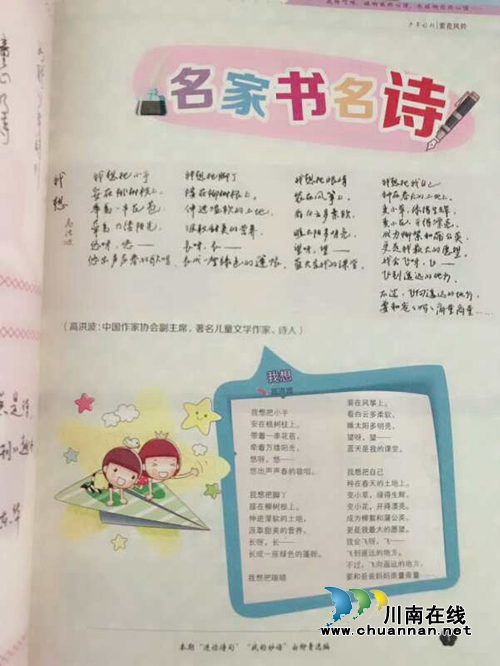 少年百科｜蒙克风铃
名家书名诗
我想
高洪波
我想把小手
安在桃树枝上。
带着一串花苞，
牵着万缕阳光，
悠呀，悠——
悠出声声春的歌唱。
我想把脚丫
接在柳树根上。
伸进湿软的土地，
汲取甜美的营养，
长呀，长——
长成一座绿色的篷帐。
我想把眼睛
装在风筝上。
看白云多柔软，
瞧太阳多明亮，
望呀，望——
蓝天是我的课堂。
我想把我自己
种在春天的土地上。
变小草，绿得生辉，
变小花，开得漂亮。
成为柳絮和蒲公英，
更是我最大的愿望。
我会飞呀，飞——
飞到遥远的地方。
不过，飞向遥远的地方，
要和爸爸妈妈商量商量……
（高洪波：中国作家协会副主席，著名儿童文学作家，诗人）
我想
高洪波
我想把小手
安在桃树枝上。
带着一串花苞，
牵着万缕阳光，
悠呀，悠——
悠出声声春的歌唱。
我想把脚丫
接在柳树根上。
伸进湿软的土地，
汲取甜美的营养，
长呀，长——
长成一座绿色的篷帐。
我想把眼睛
装在风筝上。
看白云多柔软，
瞧太阳多明亮，
望呀，望——
蓝天是我的课堂。
我想把自己
种在春天的土地上。
变小草，绿得生辉，
变小花，开得漂亮。
成为柳絮和蒲公英，
更是我最大的愿望。
我会飞呀，飞——
飞到遥远的地方。
不过，飞向遥远的地方，
要和爸爸妈妈商量商量……
本期“迷你诗句”“我的妙语”由柳青选编
川南在线
www.chuannan.net